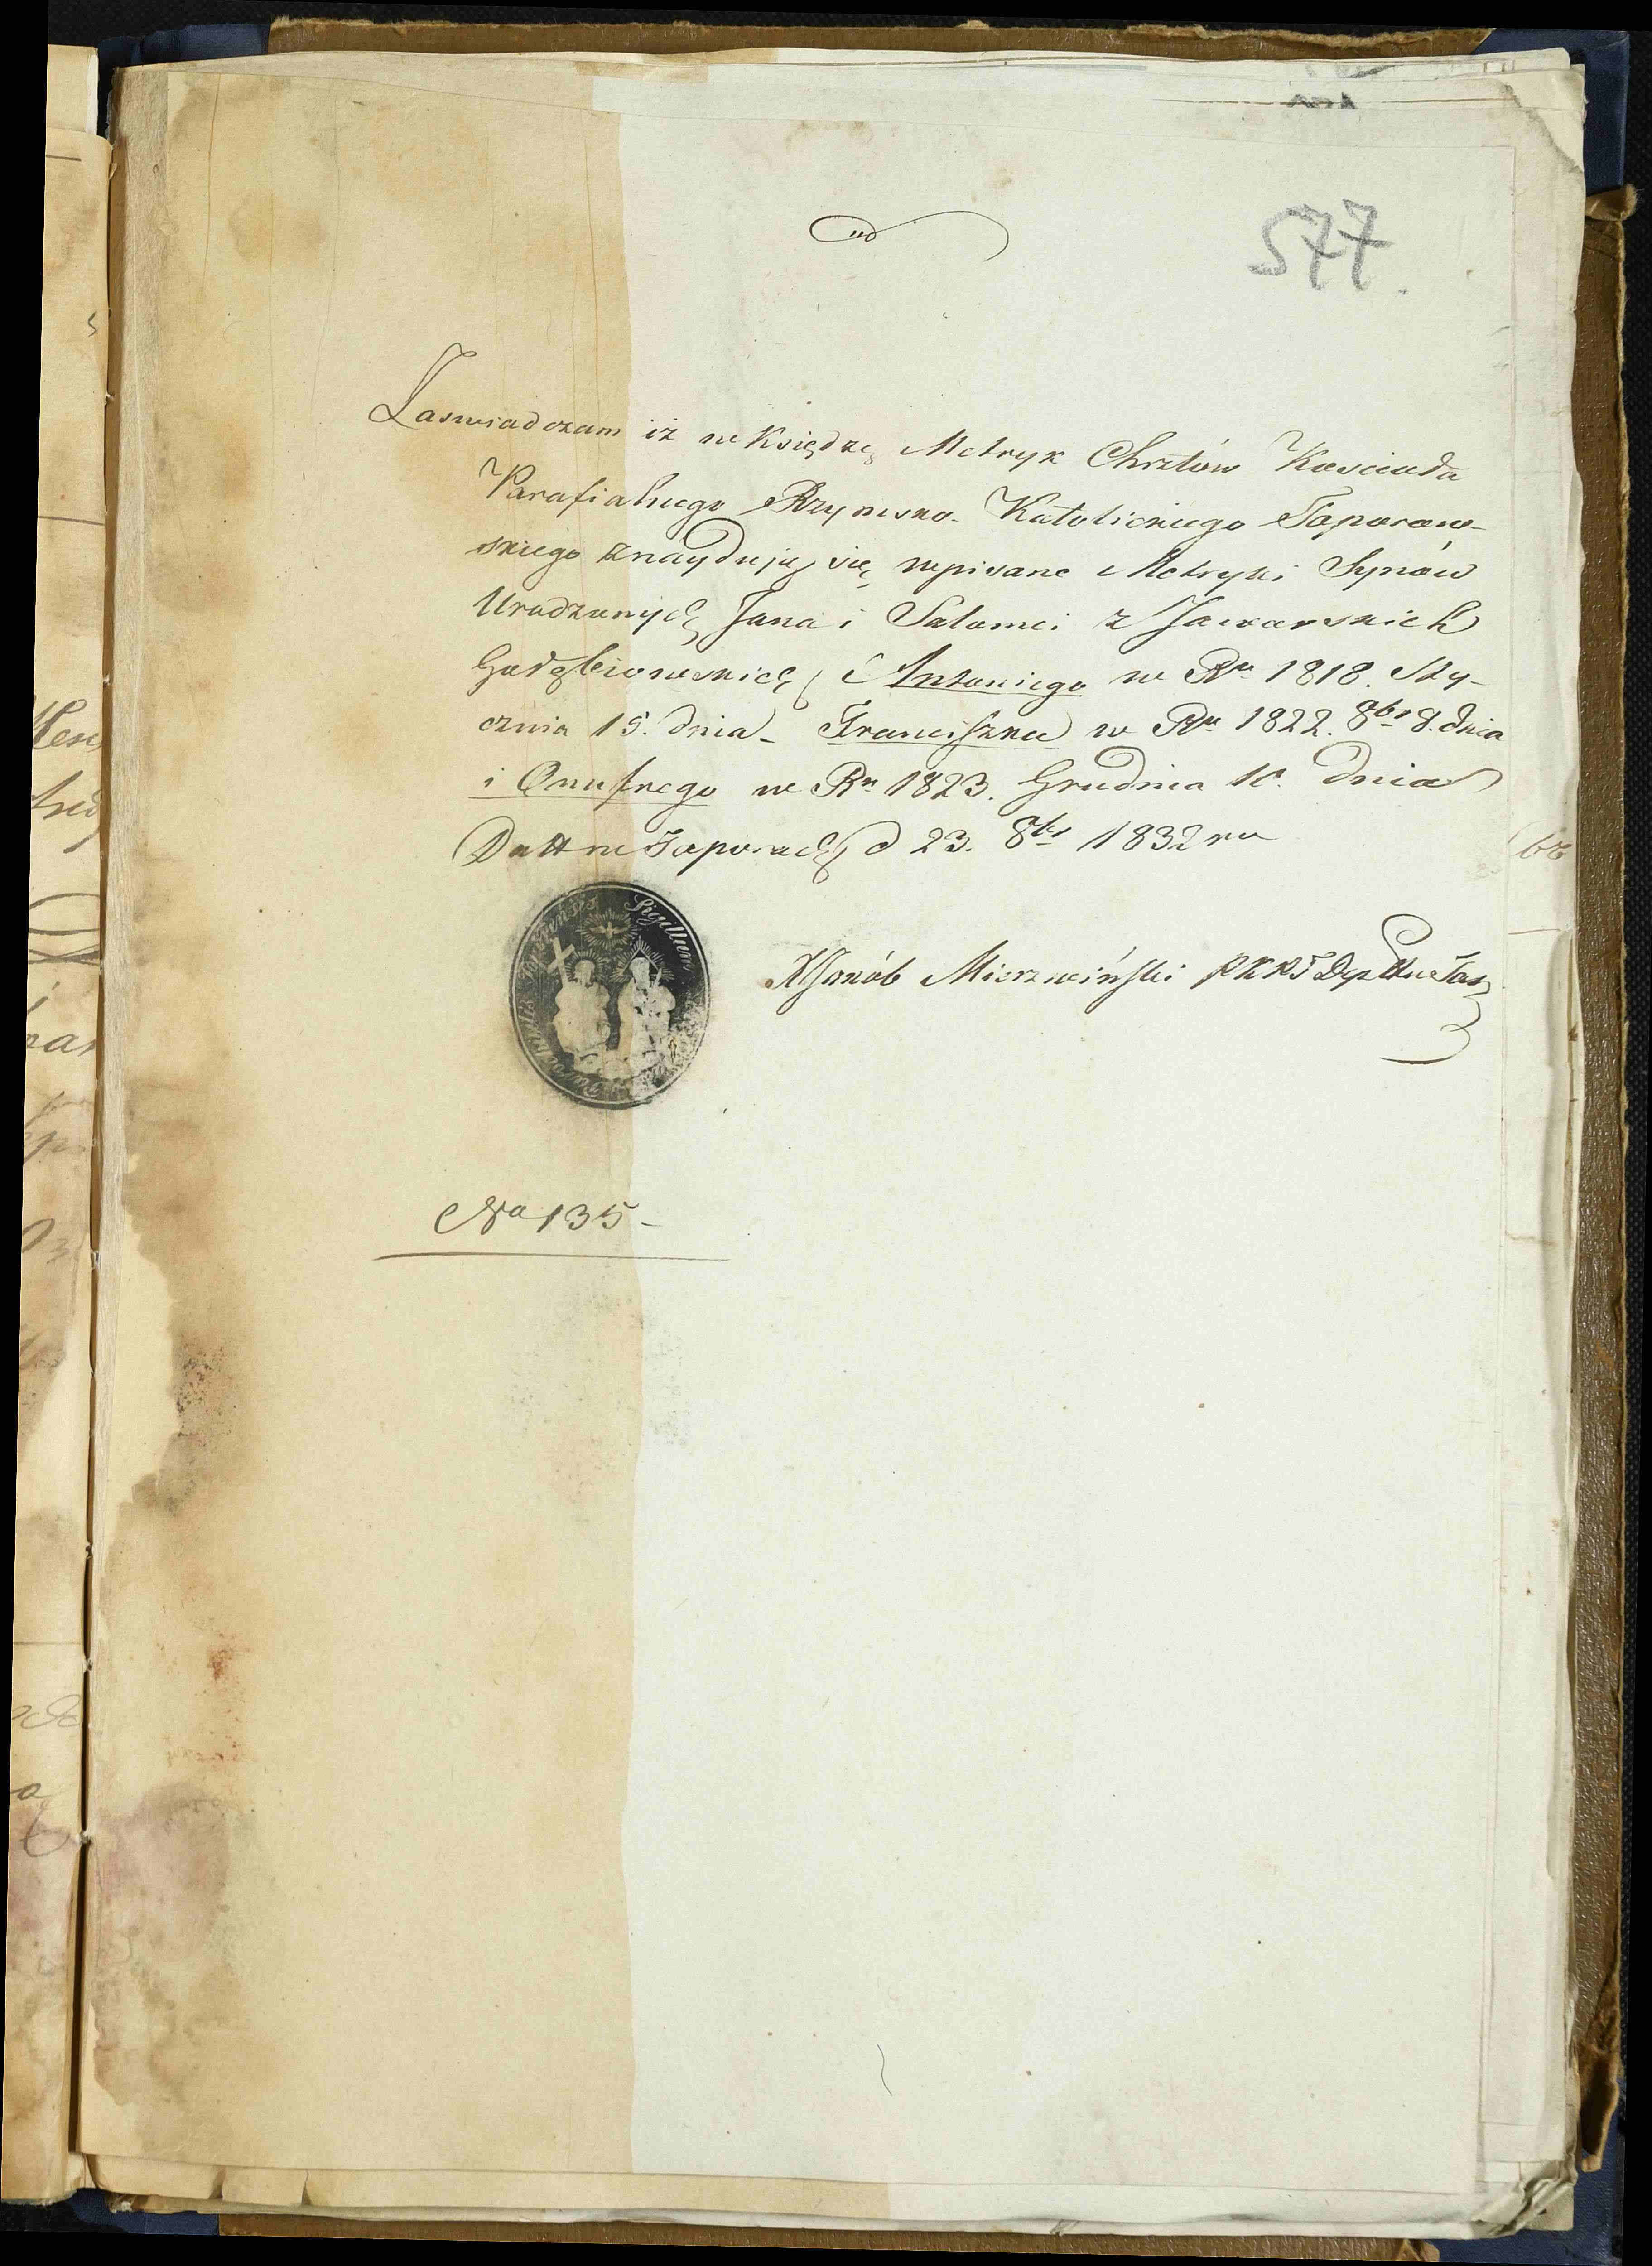 577.
Zaswiadczam iż w Księdze Metryk Chrztów Kościoła
Parafialnego Rzymsko-Katolickiego Toporow-
skiego znaydują się wpisane Metryki Synów
Urodzonych Jana i Salomei z Jaworskich
Gołębiowskich Antoniego w Ru 1818. Sty-
cznia 15. dnia - Franciszka w Ru 1822. 8br 8. dnia
i Onufrego w Ru 1823. Grudnia 10. dnia
Datt w Toporach d 23. 8br 1832 ru
Sigillum
X Jakób Mierzwiński PKRT
No 135-